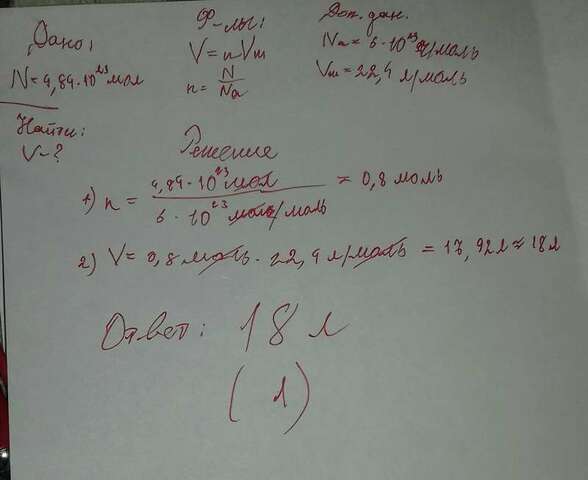 Дано:
N=4,84·10²³ мол
Найти:
V-?
Ф-лы:
V=nVm
n= N/Na
Доп. дан.
Na=6·10²³ /моль
Vm=22,4 л/моль
Решение
1) n = 4,84·10²³ мол / 6·10²³ мол/моль = 0,8 моль
2) V= 0,8 моль · 22,4 л/моль = 17,92 л ≈ 18 л
Ответ: 18 л
(1)